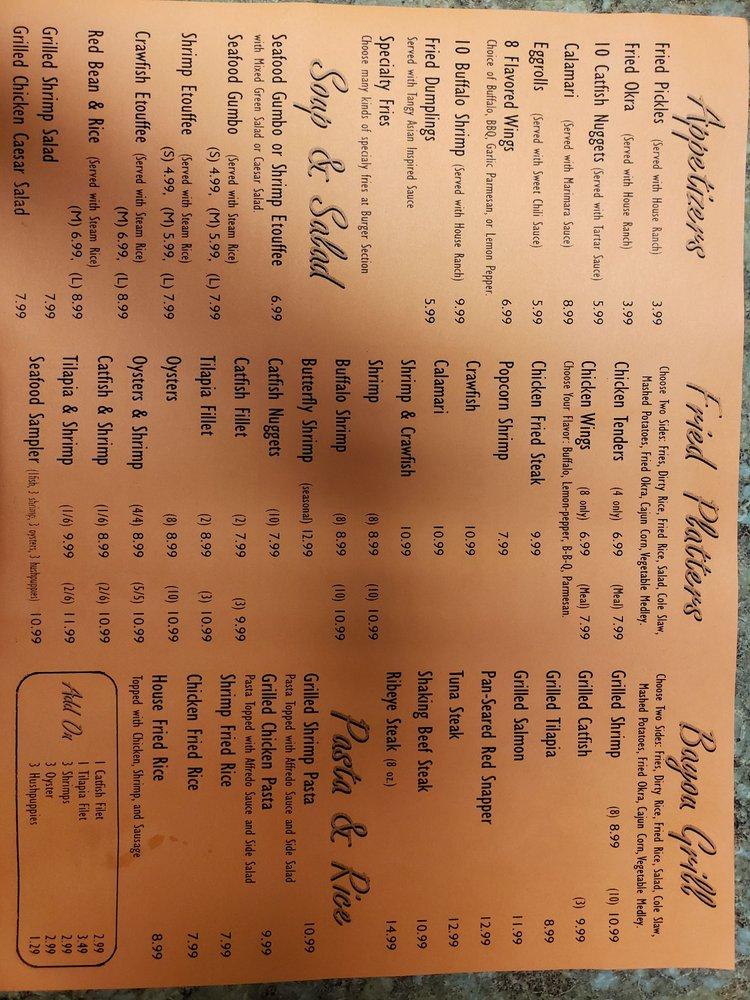 Appetizers
Fried Pickles (Served with House Ranch) 3.99
Fried Okra (Served with House Ranch) 3.99
10 Catfish Nuggets (Served with Tartar Sauce) 5.99
Calamari (Served with Marinara Sauce) 8.99
Eggrolls (Served with Sweet Chili Sauce) 5.99
8 Flavored Wings 6.99
Choice of Buffalo, BBQ, Garlic Parmesan, or Lemon Pepper.
10 Buffalo Shrimp (Served with House Ranch) 9.99
Fried Dumplings 5.99
Served with Tangy Asian Inspired Sauce
Specialty Fries
Choose many kinds of specialy fries at Burger Section
Soup & Salad
Seafood Gumbo or Shrimp Etouffee 6.99
with Mixed Green Salad or Caesar Salad
Seafood Gumbo (Served with Steam Rice)
(S) 4.99, (M) 5.99, (L) 7.99
Shrimp Etouffee (Served with Steam Rice)
(S) 4.99, (M) 5.99, (L) 7.99
Crawfish Etouffee (Served with Steam Rice)
(M) 6.99, (L) 8.99
Red Bean & Rice (Served with Steam Rice)
(M) 6.99, (L) 8.99
Grilled Shrimp Salad 7.99
Grilled Chicken Caesar Salad 7.99
Fried Platters
Choose Two Sides: Fries, Dirty Rice, Fried Rice, Salad, Cole Slaw,
Mashed Potatoes, Fried Okra, Cajun Corn, Vegetable Medley.
Chicken Tenders (4 only) 6.99 (Meal) 7.99
Chicken Wings (8 only) 6.99 (Meal) 7.99
Choose Your Flavor: Buffalo, Lemon-pepper, B-B-Q, Parmesan.
Chicken Fried Steak 9.99
Popcorn Shrimp 7.99
Crawfish 10.99
Calamari 10.99
Shrimp & Crawfish 10.99
Shrimp (8) 8.99 (10) 10.99
Buffalo Shrimp (8) 8.99 (10) 10.99
Butterfly Shrimp (seasonal) 12.99
Catfish Nuggets (10) 7.99
Catfish Fillet (2) 7.99 (3) 9.99
Tilapia Fillet (2) 8.99 (3) 10.99
Oysters (8) 8.99 (10) 10.99
Oysters & Shrimp (4/4) 8.99 (5/5) 10.99
Catfish & Shrimp (1/6) 8.99 (2/6) 10.99
Tilapia & Shrimp (1/6) 9.99 (2/6) 11.99
Seafood Sampler (1fish, 3 shrimp, 3 oysters, 3 hushpuppies) 10.99
Bayou Grill
Choose Two Sides: Fries, Dirty Rice, Fried Rice, Salad, Cole Slaw,
Mashed Potatoes, Fried Okra, Cajun Corn, Vegetable Medley.
Grilled Shrimp (8) 8.99 (10) 10.99
Grilled Catfish (3) 9.99
Grilled Tilapia 8.99
Grilled Salmon 11.99
Pan-Seared Red Snapper 12.99
Tuna Steak 12.99
Shaking Beef Steak 10.99
Ribeye Steak (8 oz.) 14.99
Pasta & Rice
Grilled Shrimp Pasta 10.99
Pasta Topped with Alfredo Sauce and Side Salad
Grilled Chicken Pasta 9.99
Pasta Topped with Alfredo Sauce and Side Salad
Shrimp Fried Rice 7.99
Chicken Fried Rice 7.99
House Fried Rice 8.99
Topped with Chicken, Shrimp, and Sausage
Add On
1 Catfish Filet 2.99
1 Tilapia Filet 3.49
3 Shrimps 2.99
3 Oyster 2.99
3 Hushpuppies 1.29